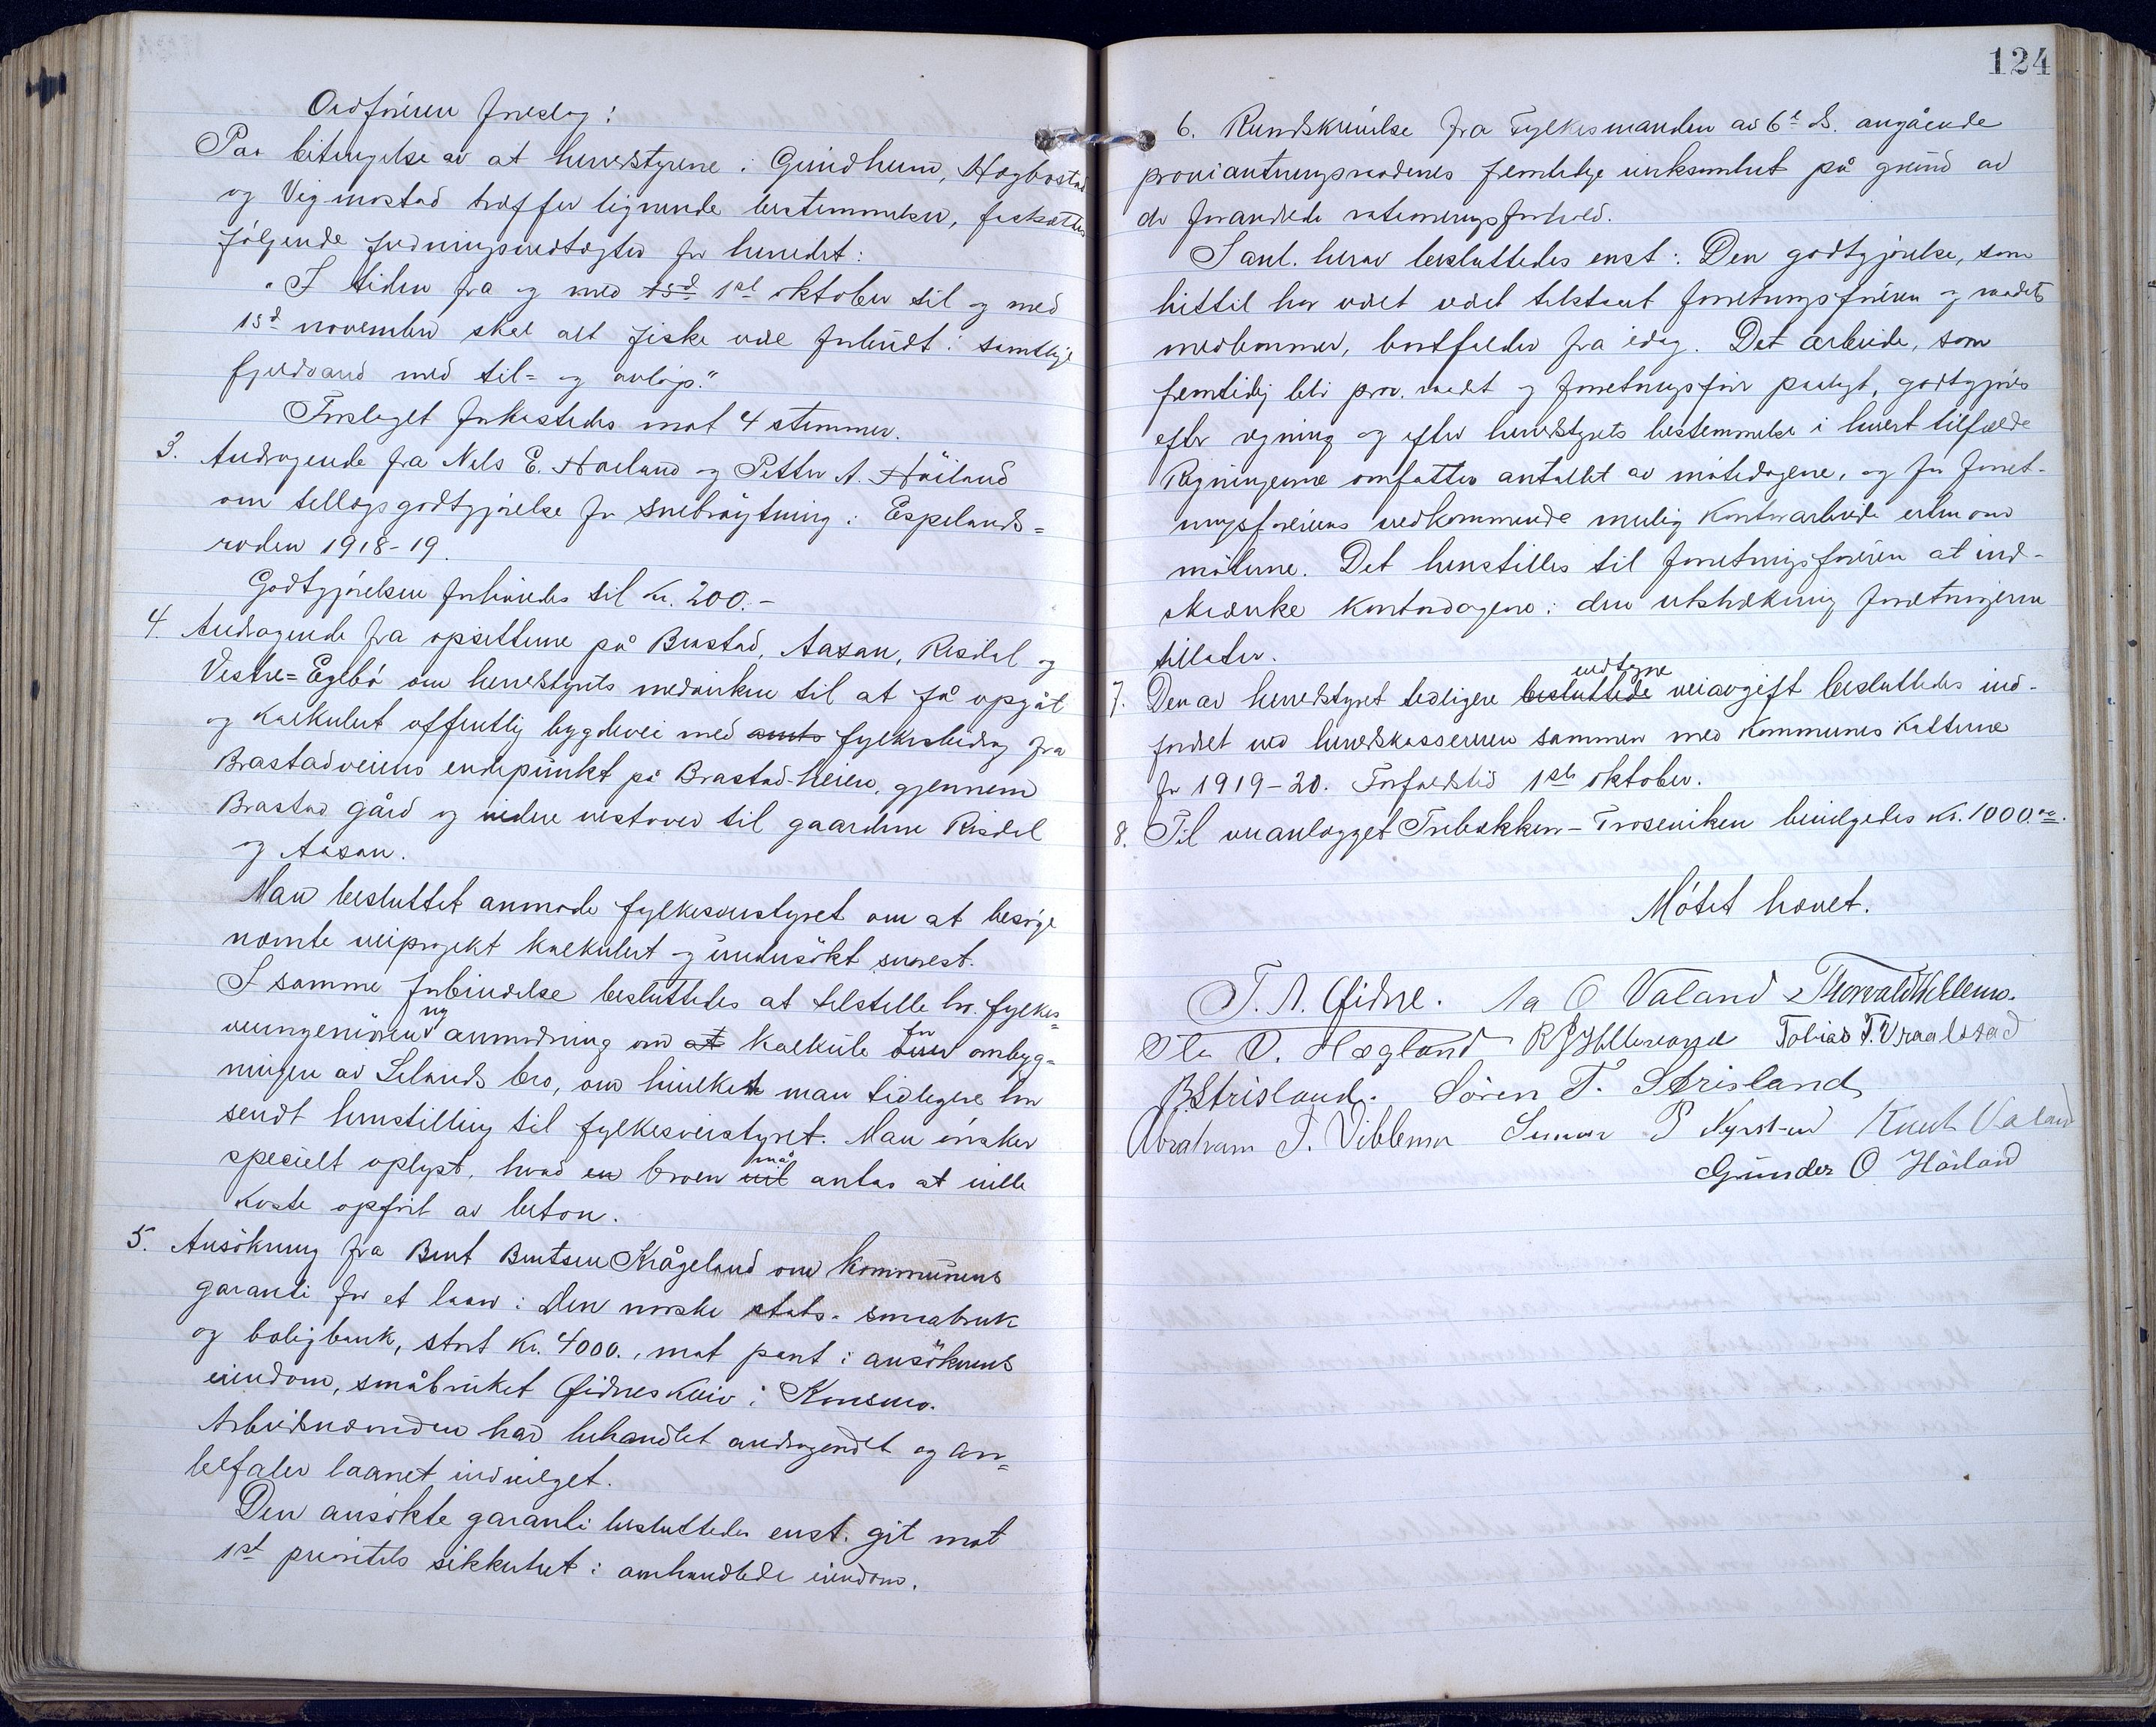 Ordføreren foreslog:
Paa betingelse av at herredstyrene i Grindheim, Hægbostad
og Vigmostad træffer lignende bestemmelser, fastsættes
følgende fredningsvedtægter for herredet:
"I tiden fra og med 15d 1ste oktober til og med
15d november skal alt fiske være forbudt i samtlige
fjeldvand med til= og avløp."
Forslaget forkastedes mot 4 stemmer.
3. Andragende fra Nels E. Høiland og Petter A. Høiland
om tillægsgodtgjørelse for snebrøytning i Espelands=
roden 1918-19.
Godtgjørelsen forhøiedes til kr. 200.-
4. Andragende fra opsitterne på Brastad, Aasan, Risdal og
Vestre=Eglbø om herredstyrets medvirken til at få opgåt
og kalkulert offentlig bygdevei med amts fylkesbidrag fra
Brastadveiens endepunkt på Brastad-heien, gjennem
Brastad gård og videre vestover til gaardene Risdal
og Aasan.
Man besluttet anmode fylkesveistyret om at besørge
nævnte veiprojekt kalkulert og undersøkt snarest.
I samme forbindelse besluttedes at tilstille hr. fylkes=
veiingeniøren ny anmodning om at kalkule over for ombyg=
ningen av Lelands bro, om hvilket man tidligere har
sendt henstilling til fylkesveistyret. Man ønsker
specielt oplyst, hvad en broen vil må antas at ville
koste opført av beton.
5. Ansøkning fra Bent Bentsen Skågeland om kommunens
garanti for et laan i Den norske stats- smaabruk
og boligbank, stort kr. 4000., mot pant i ansøkerens
eiendom, småbruket Øidneskleiv i Konsmo.
Arbeidsnæmnden har behandlet andragendet og an=
befaler laanet indvilget.
Den ansøkte garanti besluttedes enst. git mot
1st prioritets sikkerhet i omhandlede eiendom.
124
6. Rundskrivelse fra Fylkesmanden av 6te ds. angående
provianteringsraadenes fremtidige virksomhet på grund av
de forandrede rationeringsforhold.
I anl. herav besluttedes enst.: Den godtgjørelse, som
hittil har været tilstaaet forretningsføreren og raadets
medlemmer, bortfalder fra idag. Det arbeide, som
fremtidig blir prov. raadet og forretningsfører paalagt, godtgjøres
efter regning og efter herredstyrets bestemmelse i hvert tilfælde
Regningerne omfatter antallet av møtedagene, og for forret-
ningsførerens vedkommende mulig kontorarbeide utenom
møterne. Det henstilles til forretningsføreren at ind-
skrænke kontordagene i den utstrækning forretningerne
tillater.
7. Den av herredstyret tidligere besluttede vedtagne veiavgift besluttedes ind-
fordret ved herredskassereren sammen med kommuneskatterne
for 1919-20. Forfaldstid 1ste oktober.
8. Til veianlægget Trebakken-Troseviken bevilgedes kr. 1000.00.
Møtet hævet.
T. A. Øidne. Aa O Valand Thorvald Viblemo.
Ola O. Hægland Tobias T. Vraalstad
B. Strisland. Søren T. Strisland
Abraham T. Viblemo Gunnar P Nyrstad Knut Valand
Gunder O Høiland